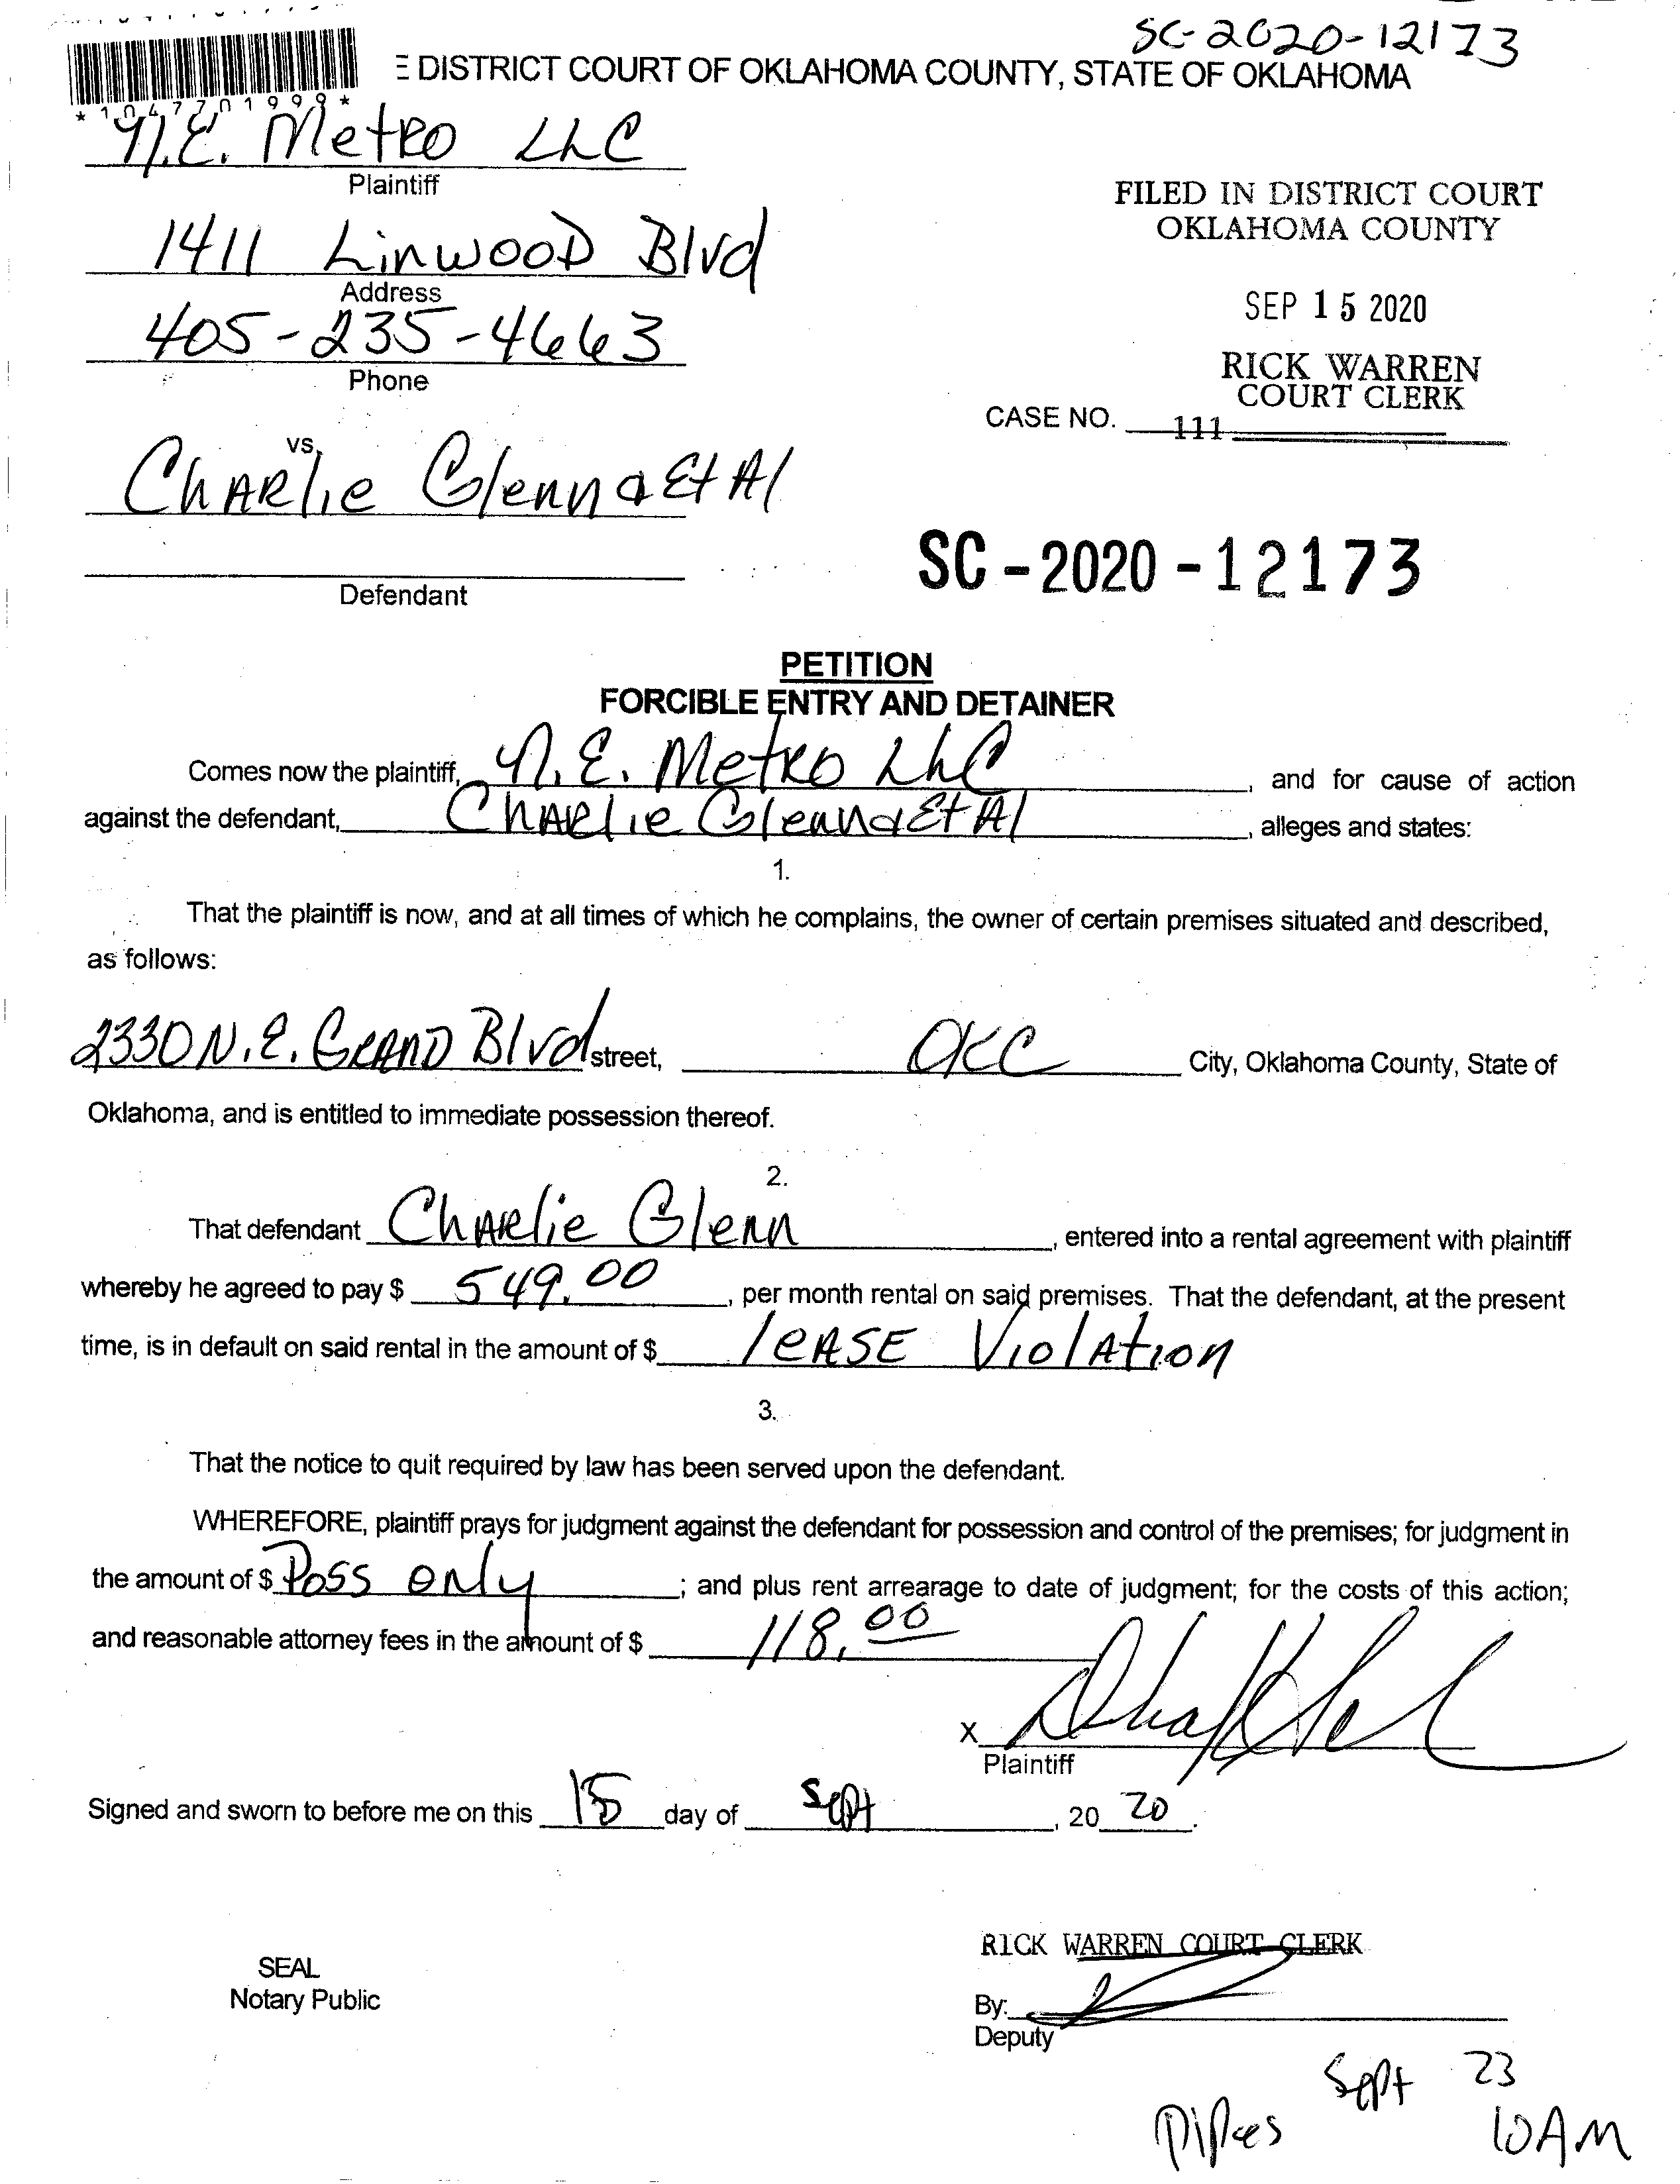 SC-2020-12173
E DISTRICT COURT OF OKLAHOMA COUNTY, STATE OF OKLAHOMA
* 1 0 4 7 7 0 1 9 9 9 *
N.E. Metro LLC
Plaintiff
FILED IN DISTRICT COURT
OKLAHOMA COUNTY
1411 Linwood Blvd
Address
SEP 15 2020
405-235-4663
Phone
RICK WARREN
COURT CLERK
CASE NO. 111
vs.
Charlie Glenn & Et Al
SC-2020-12173
Defendant
PETITION
FORCIBLE ENTRY AND DETAINER
Comes now the plaintiff, N.E. Metro LLC, and for cause of action
against the defendant, Charlie Glenn & Et Al, alleges and states:
1.
That the plaintiff is now, and at all times of which he complains, the owner of certain premises situated and described,
as follows:
2330 N.E. Grand Blvd street, OKC City, Oklahoma County, State of
Oklahoma, and is entitled to immediate possession thereof.
2.
That defendant Charlie Glenn, entered into a rental agreement with plaintiff
whereby he agreed to pay $ 549.00, per month rental on said premises. That the defendant, at the present
time, is in default on said rental in the amount of $ lease Violation
3.
That the notice to quit required by law has been served upon the defendant.
WHEREFORE, plaintiff prays for judgment against the defendant for possession and control of the premises; for judgment in
the amount of $ Poss only; and plus rent arrearage to date of judgment; for the costs of this action;
and reasonable attorney fees in the amount of $ 118.00
X
Plaintiff
Signed and sworn to before me on this 15 day of Sept, 20 20.
RICK WARREN COURT CLERK
SEAL
Notary Public
By:
Deputy
Sept 23
10AM